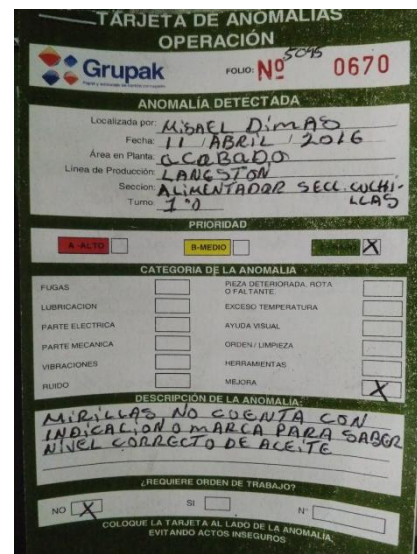 TARJETA DE ANOMALIAS
OPERACIÓN
Grupak
FOLIO: Nº 5095 0670
ANOMALÍA DETECTADA
Localizada por: MISAEL DIMAS
Fecha: 11 / ABRIL / 2016
Área en Planta: ACABADO
Linea de Producción: LANGSTON
Seccion: ALIMENTADOR SECC. CUCHI-
LLAS
Turno: 1º
PRIORIDAD
A -ALTO B-MEDIO X
CATEGORIA DE LA ANOMALIA
FUGAS PIEZA DETERIORADA, ROTA
O FALTANTE.
LUBRICACION EXCESO TEMPERATURA
PARTE ELECTRICA AYUDA VISUAL
PARTE MECANICA ORDEN / LIMPIEZA
VIBRACIONES HERRAMIENTAS
RUIDO MEJORA X
DESCRIPCIÓN DE LA ANOMALIA:
MIRILLAS NO CUENTA CON
INDICACION O MARCA PARA SABER
NIVEL CORRECTO DE ACEITE
¿REQUIERE ORDEN DE TRABAJO?
NO X SI N°
COLOQUE LA TARJETA AL LADO DE LA ANOMALIA,
EVITANDO ACTOS INSEGUROS